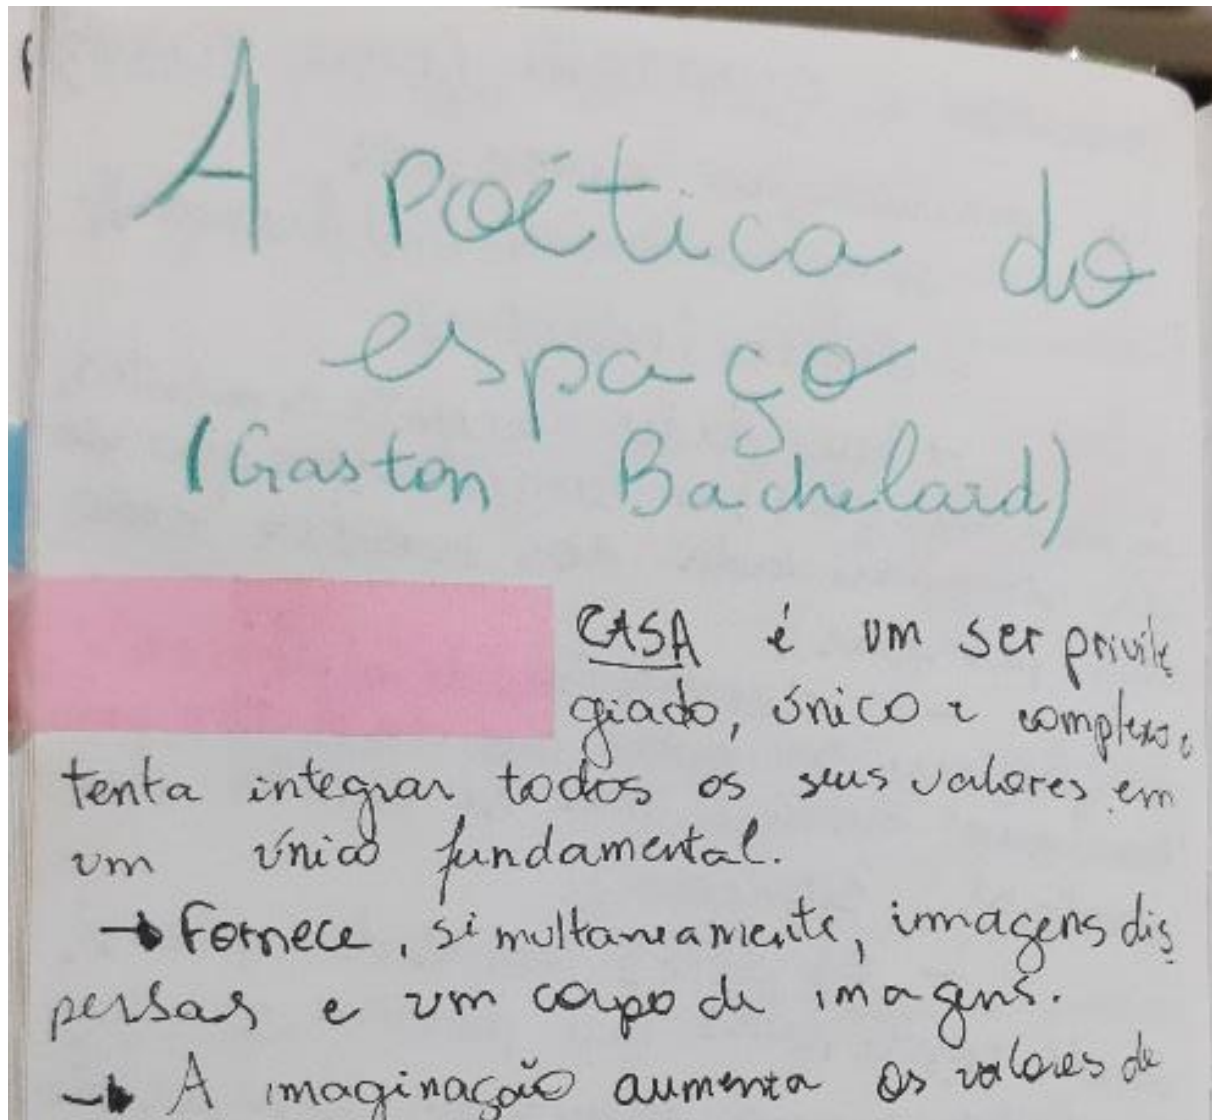 A poética do
espaço
(Gaston Bachelard)
CASA é um ser privile
giado, único e complexo e
tenta integrar todos os seus valores em
um único fundamental.
→ Fornece, simultaneamente, imagens dis
persas e um corpo de imagens.
→ A imaginação aumenta os valores de